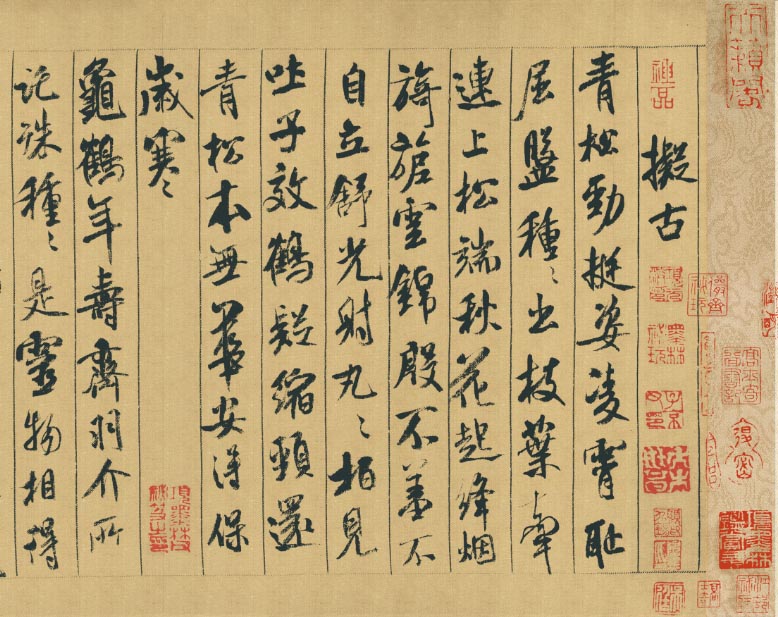 神品
擬古
青松勁挺姿凌霄恥
屈盤種〻出枝葉牽
連上松端秋花起絳烟
旖旎雲錦殷不羞不
自立舒光射丸〻柏見
吐子效鶴疑縮頸還
青松本無華安得保
歲寒
項墨林父秘笈之印
龜鶴年壽齊羽介所
託殊種〻是靈物相得